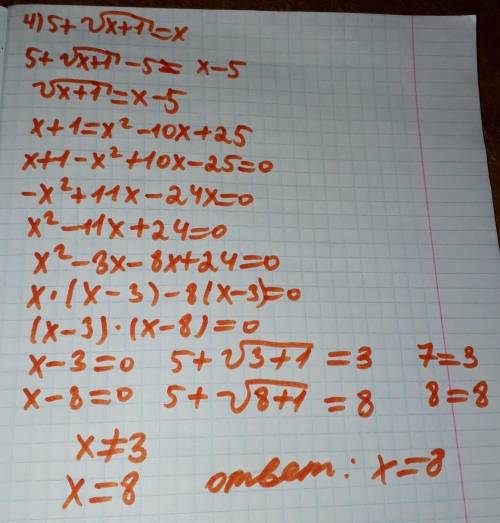 4) 5+√x+1=x
5+√x+1-5= x-5
√x+1=x-5
x+1=x²-10x+25
x+1-x²+10x-25=0
-x²+11x-24x=0
x²-11x+24=0
x²-3x-8x+24=0
x·(x-3)-8(x-3)=0
(x-3)·(x-8)=0
x-3=0 5+√3+1=3 7=3
x-8=0 5+√8+1=8 8=8
x≠3
x=8 ответ: x=8